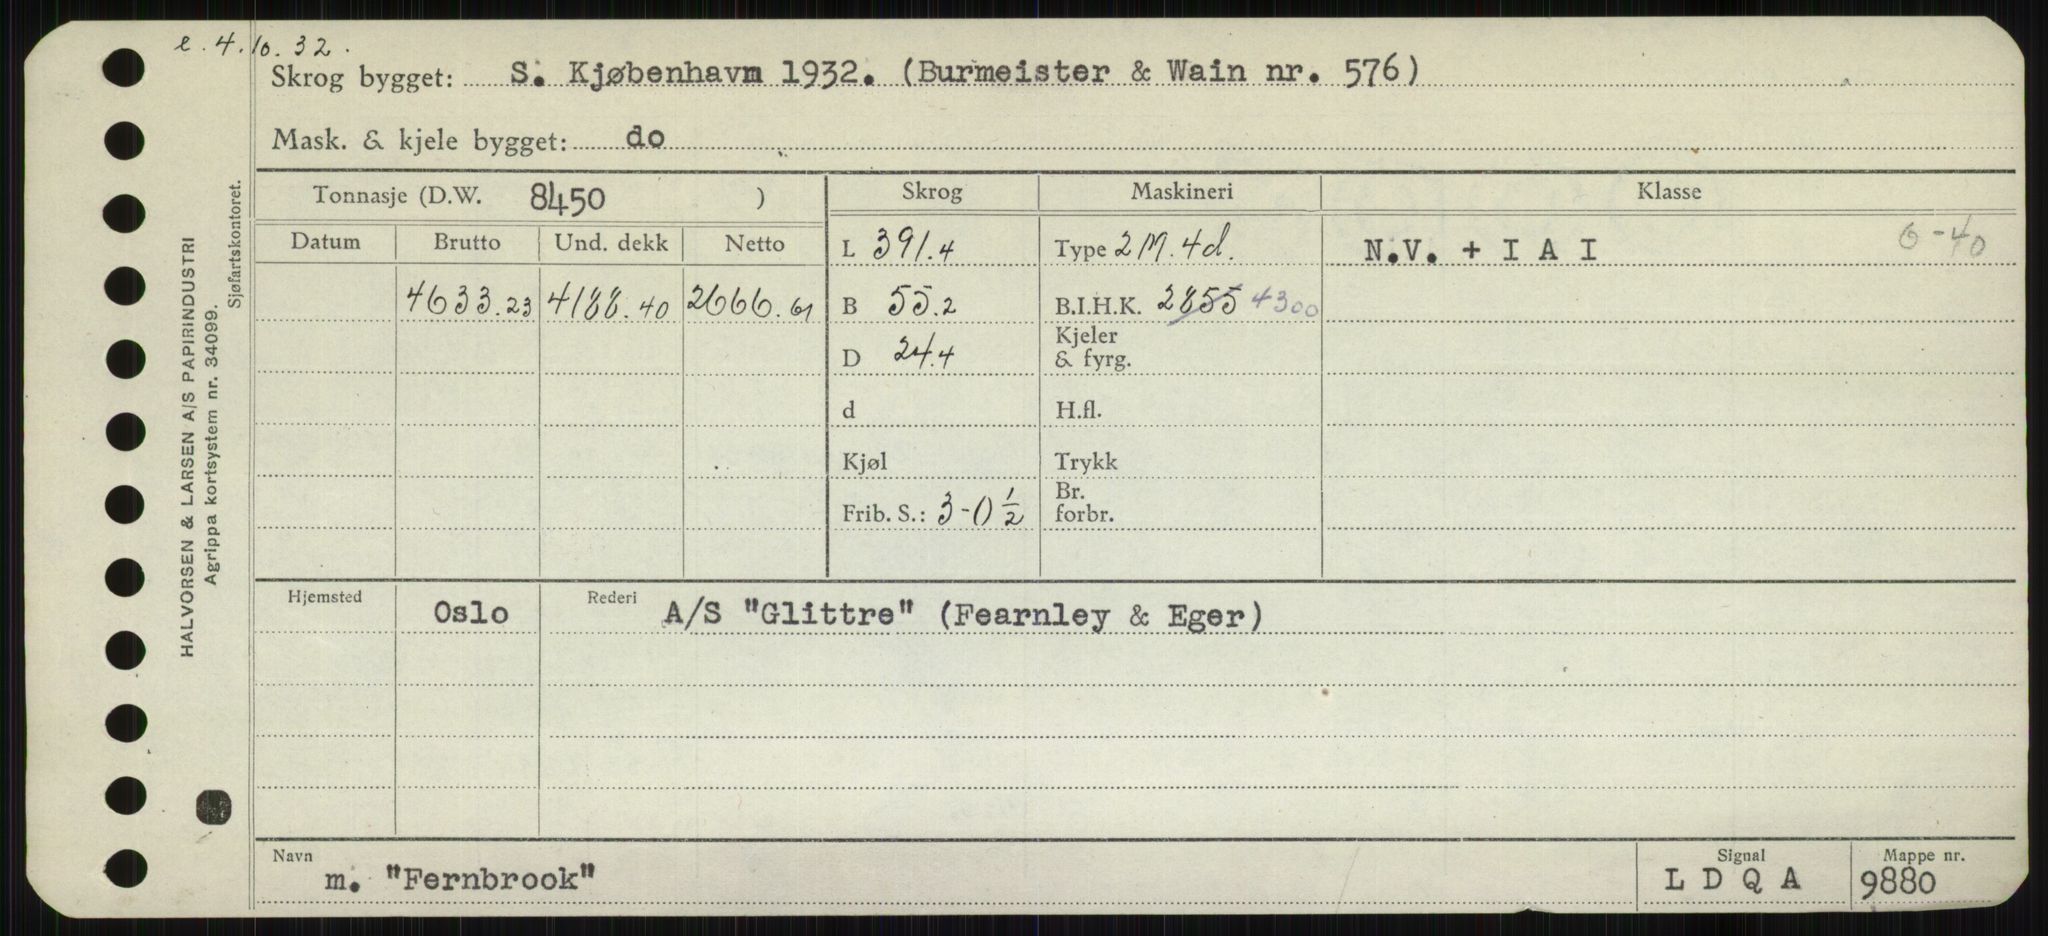 e. 4.10.32.
Skrog bygget: S. Kjøbenhavn 1932. (Burmeister & Wain nr. 576)
Mask. & kjele bygget: do
Tonnasje (D.W. 8450 )
Skrog
Maskineri
Klasse
Datum Brutto Und. dekk Netto
4633.23 4188.40 2666.61
L 391.4
B 55.2
D 24.4
d
Kjøl
Frib. S.: 3-0 1/2
Type 2 M. 4d.
B.I.H.K. 2855 4300
Kjeler
& fyrg.
H.fl.
Trykk
Br.
forbr.
N.V. + I A I 6-40
Hjemsted Oslo Rederi A/S "Glittre" (Fearnley & Eger)
Navn m. "Fernbrook"
Signal L D Q A
Mappe nr. 9880
HALVORSEN & LARSEN A/S PAPIRINDUSTRI
Agrippa kortsystem nr. 34099.
Sjøfartskontoret.